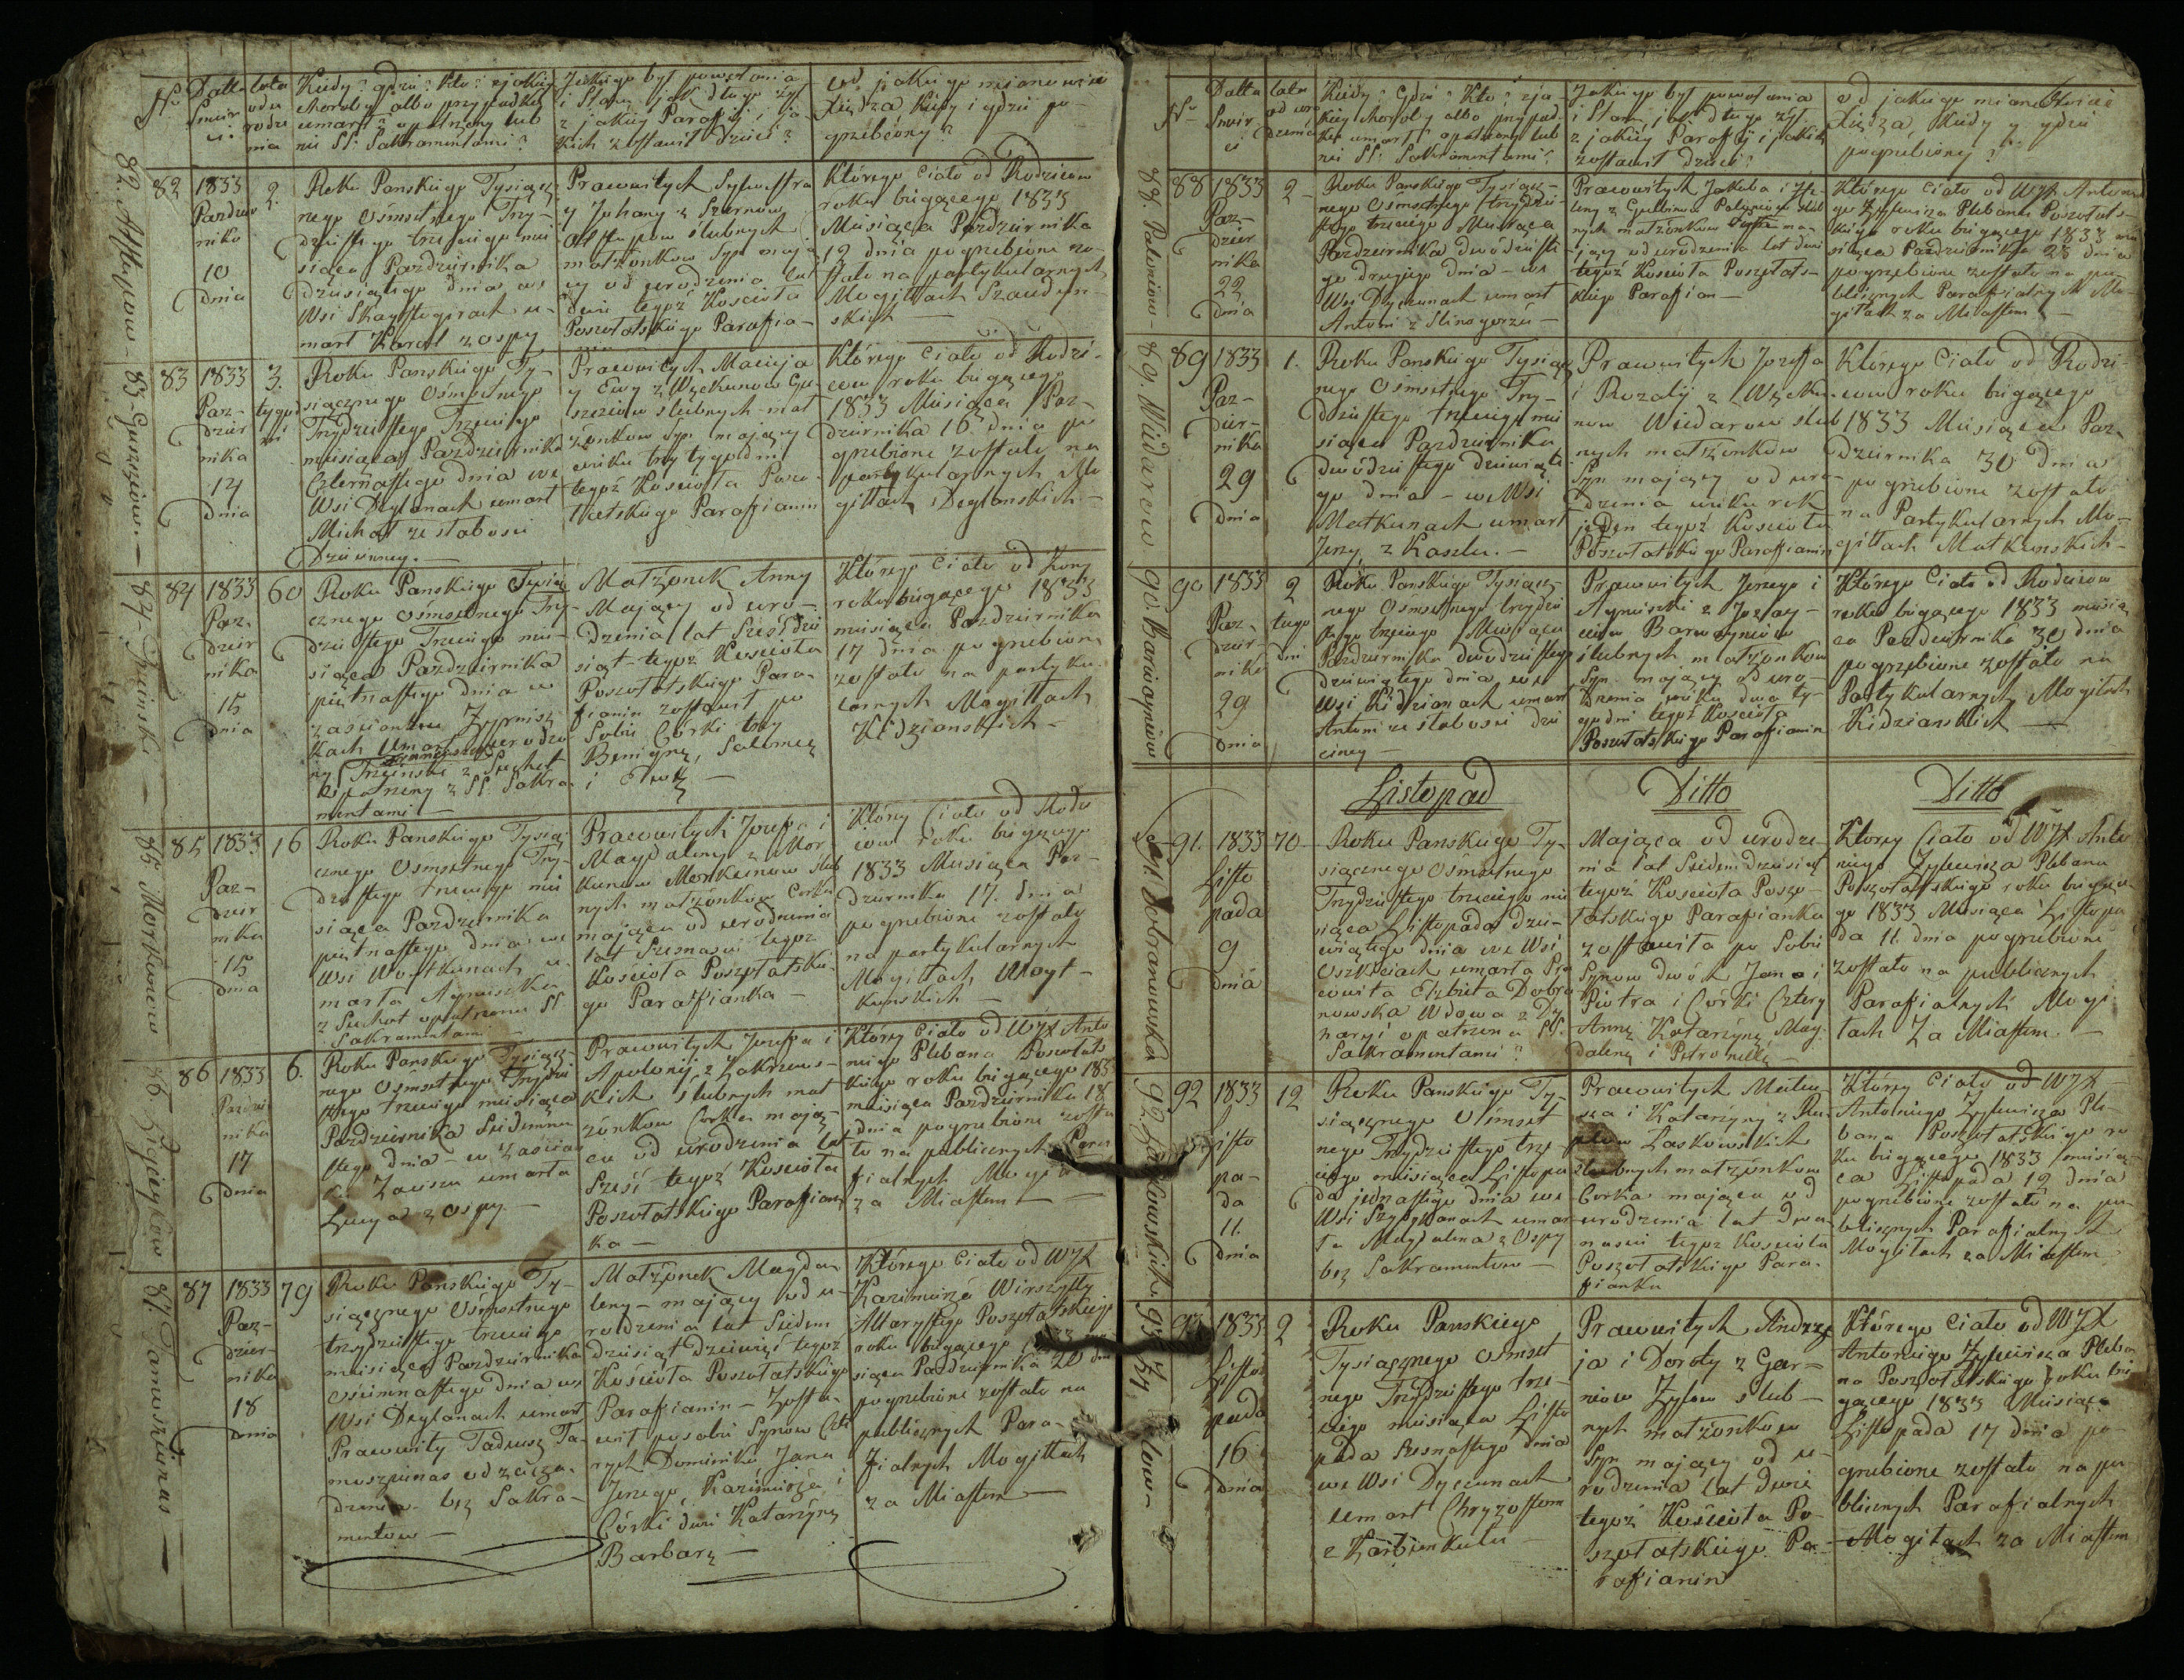 Nro
Datta Śmierci
lata od urodzenia
Kiedy? gdzie? Kto? z jakiey
choroby albo przypadku
umarł? opatrzony lub
nie SS: Sakramentami?
Jakiego był powołania
i Stanu jak długo żył
z jakiey Parafij i ja-
kich zostawił dzieci?
od jakiego mianowicie
Xiędza Kiedy i gdzie po-
grzebiony?
82
1833
Pazdzier
nika
10
dnia
2.
Roku Panskiego Tysiącz
nego Osmsetnego Trzy-
dziestego trzeciego mie
siąca Pazdziernika
dziesiątego dnia we
Wsi Skaystegirach u-
marł Karol z ospy
Prawowitych Sylwestra
y Johany z Szernow
slubnych
małżonkow Syn mają
cy od urodzenia lat
dwie tegoż Koscioła
Poszołatskiego Parafia-
Którego Ciało od Rodzicow
roku biegącego 1833
Miesiąca Pazdziernika
12 dnia pogrzebione zo-
stało na partykularnych
Mogiłłach
skich
83
1833
Paz-
dzier
nika
14
dnia
3.
tygod
ni
Roku Panskiego Ty-
siącznego Osmsetnego
Trzydziestego Trzeciego
miesiąca Pazdziernika
Czternastego dnia we
Wsi Deglanach umarł
Michał ze słabosci
Dziecinney.
Prawowitych Macieja
y Ewy z Węckunow Gu-
szciow slubnych mał
żonkow Syn mający
wieku trzy tygodni
tegoż Koscioła Poszo-
łatskiego Parafianin
Którego Ciało od Rodzi-
cow roku biegącego
1833 Miesiąca Paz-
dziernika 16 dnia po
grzebione zostało na
partykularnych Mo
giłłach Deglanskich.
84
1833
Paz-
dzier
nika
15
dnia
60
Roku Panskiego Tysią
cznego Osmsetnego Trzy-
dziestego Trzeciego mie-
siąca Pazdziernika
piętnastego dnia w
zascianku
kach umarł urodzo
ny Trzcinski z Suchot
opatrzony z SS. Sakra
mentami
Małżonek Anny
Mający od uro-
dzenia lat Sześćdzie
siąt tegoż Koscioła
Poszołatskiego Para-
fianin zostawił po
Sobie Córki trzy
Benignę, Salomeę
i Teklę
Którego Ciało od Żony
roku biegącego 1833
miesiąca Pazdziernika
17 dnia pogrzebione
zostało na partyku
larnych Mogiłłach
Kidzianskich
85
1833
Paz-
dzier
nika
15
dnia
16
Roku Panskiego Tysią
cznego Osmsetnego Trzy-
dziestego trzeciego mie
siąca Pazdziernika
piętnastego dnia we
Wsi Woytkunach u-
marła Agnieszka
z Suchot opatrzona SS
Sakramentami
Prawowitych Jozefa i
Magdaleny z Mor
kunow Morkunow slub
nych małżonkow Corka
mająca od urodzenia
lat Szesnascie tegoż
Koscioła Poszołatskie-
go Parafianka
Którey Ciało od Rodzi
cow roku biegącego
1833 Miesiąca Paz-
dziernika 17. dnia
pogrzebione zostało
na partykularnych
Mogiłłach Woyt-
kunskich
86
1833
Pazdzier
nika
17
dnia
6.
Roku Panskiego Tysiącz-
nego Osmsetnego Trzydzie
stego trzeciego miesiąca
Pazdziernika Siedmna
stego dnia - w Zascian
ku Zawiszu umarła
Łucya z ospy
Prawowitych Jozefa i
Apolonij z Zakrzews-
kich slubnych mał
żonkow Corka mają-
ca od urodzenia lat
Sześć tegoż Koscioła
Poszołatskiego Parafian
ka
Którey Ciało od WJX Anto
niego Plebana Poszołats
kiego roku biegącego 183
miesiąca Pazdziernika 18
dnia pogrzebione zosta
ło na publicznych Para
fialnych Mogi
za Miastem
87
1833
Paz-
dzier-
nika
18
dnia
79
Roku Panskiego Ty-
siącznego Osmsetnego
trzydziestego trzeciego
miesiąca Pazdziernika
osiemnastego dnia we
Wsi Deglanach umarł
Prawowity Tadeusz Ta-
moszunas od
bez Sakra-
mentow
Małżonek Magda
leny - mający od u-
rodzenia lat Siedem
dziesiąt dziewięć tegoż
Koscioła Poszołatskiego
Parafianin - Zosta-
wił po sobie Synow Czte
rych Dominika Jana
Jerzego, Kazimierza i
Córki dwie Katarzynę
Barbarę
Którego Ciało od WJX
Kazimierza Wirszyłły
Altarysty Poszołatskiego
roku biegącego
siąca Pazdziernika 20 dnia
pogrzebione zostało na
publicznych Para-
fialnych Mogiłłach
za Miastem
83 Guszciow.
84 Trzcinski
85. Morkunow
87. Tamoszunas
Nro
Datta Śmierci
lata od urodzenia
Kiedy? Gdzie? Kto? z ja-
kiey choroby albo przypad-
ku umarł? opatrzony lub
nie SS: Sakramentami?
Jakiego był powołania
i Stanu, jak długo żył
z jakiey Parafij i jakich
zostawił dzieci?
od jakiego mianowicie
Xiędza, Kiedy y gdzie
pogrzebiony?
88
1833
Paz-
dzier
nika
22
dnia
2
Roku Panskiego Tysiącz-
nego Osmsetnego trzydzie
stego trzeciego Miesiąca
Pazdziernika dwódzieste
go drugiego dnia - we
Wsi Dyczunach umarł
Antoni z Slinogorzu
Prawowitych Jakuba i He-
leny z slub
nych małżonkow Syn ma-
jący od urodzenia lat dwie
tegoż Koscioła Poszołats-
kiego Parafian
Którego Ciało od WJX Antonie
go Żylewicza Plebana Poszołats-
kiego roku biegącego 1833 mie
siąca Pazdziernika 23 dnia
pogrzebione zostało na pu-
blicznych Parafialnych Mo-
giłach za Miastem
89
1833
Paz-
dzier-
nika
29
dnia
1.
Roku Panskiego Tysiącz
nego Osmsetnego Trzy-
dziestego trzeciego mie
siąca Pazdziernika
dwódziestego dziewiąte
go dnia - we Wsi
Matkunach umarł
Jerzy z Kaszlu.
Prawowitych Jozefa
i Rozalij z Węcku-
now Widarow slub
nych małżonkow
Syn mający od uro-
dzenia wieku rok
jeden tegoż Koscioła
Poszołatskiego Parafianin
Którego Ciało od Rodzi-
cow roku biegącego
1833 Miesiąca Paz-
dziernika 30 dnia
pogrzebione zostało
na Partykularnych Mo-
giłłach Matkunskich
90
1833
Paz-
dzier
nika
29
dnia
2
tygo
dni
Roku Panskiego Tysiącz-
nego Osmsetnego trzydzie
stego trzeciego Miesiąca
Pazdziernika dwódziestego
dziewiątego dnia we
Wsi Kidzianach umarł
Antoni ze słabosci dzie
cinney
Prawowitych Jerzego i
Agnieszki z
ślubnych małżonkow
Syn mający od uro-
dzenia wieku dwa ty-
godni tegoż Koscioła
Poszołatskiego Parafianin
Którego Ciało od Rodzicow
roku biegącego 1833 miesią
ca Pazdziernika 30 dnia
pogrzebione zostało na
Partykularnych Mogiłach
Kidzianskich
Listopad
Ditto
Ditto
91.
1833
Listo
pada
9
dnia
70
Roku Panskiego Ty-
siącznego Osmsetnego
Trzydziestego trzeciego mie
siąca Listopada dzie-
wiątego dnia we Wsi
Oszkciach umarła Pra
cowita Elzbieta Dobra
nowska Wdowa z Dy-
naryi opatrzona SS.
Sakramentami?
Mająca od urodze-
nia lat Siedemdziesiąt
tegoż Koscioła Poszo-
łatskiego Parafianka
zostawiła po Sobie
Synow dwóch Jana i
Piotra i Córki Cztery
Annę Katarzynę Mag-
dalenę i Petronellę
Ktorey Ciało od WJX Anto
niego Żylewicza Plebana
Poszołatskiego roku biegące-
go 1833 Miesiąca Listopa
da 11. dnia pogrzebione
zostało na publicznych
Parafialnych Mogi-
łach Za Miastem.
92
1833
Listo
pa-
da
11.
dnia
12
Roku Panskiego Ty-
siącznego Osmset
nego Trzydziestego trze
ciego miesiąca Listopa
da jednastego dnia we
Wsi umar
ła Magdalena z Ospy
bez Sakramentow
Prawowitych Mateu-
sza i Katarzyny z
Laskowskich
ślubnych małżonkow
Corka mająca od
urodzenia lat dwa-
nascie tegoż Koscioła
Poszołatskiego Para-
fianka
Którey Ciało od WJX
Antoniego Żylewicza Ple-
bana Poszołatskiego ro
ku biegącego 1833 miesią-
ca Listopada 12 dnia
pogrzebione zostało na pu-
blicznych Parafialnych
Mogiłach za Miastem
93
1833
Listo
pada
16
dnia
2
Roku Panskiego
Tysiącznego Osmset
nego Trzydziestego trze-
ciego miesiąca Listo
pada Szesnastego dnia
we Wsi Dyczunach
umarł Chryzostom
z Karbunkułu
Prawowitych Andrze
ja i Doroty z Gar-
niow Żylow slub-
nych małżonkow
Syn mający od u-
rodzenia lat dwie
tegoż Koscioła Po-
szołatskiego Pa-
rafianin
Którego Ciało od WJX
Antoniego Żylewicza Pleba
na Poszołatskiego roku bie
gącego 1833 Miesiąca
Listopada 17 dnia po-
grzebione zostało na pu
blicznych Parafialnych
Mogiłach za Miastem
89. Widarow
91. Dobranowska